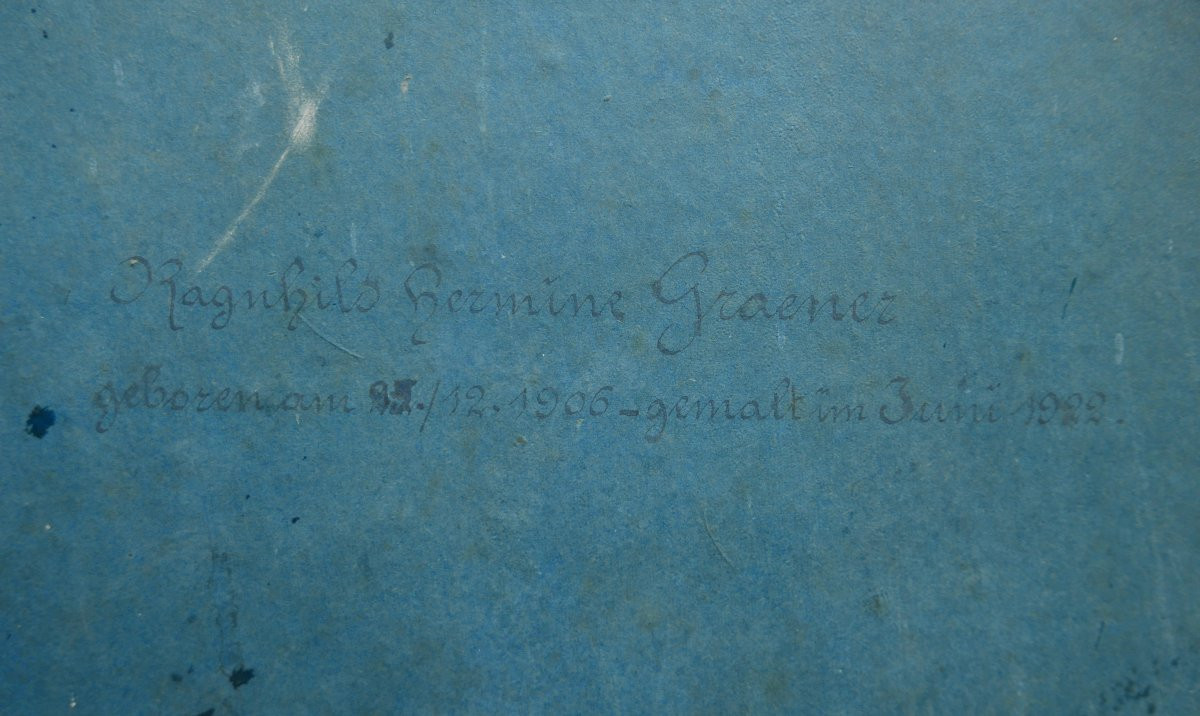 Ragnhild Hermine Graener
geboren am /12. 1906 – gemalt im Juni 1922.